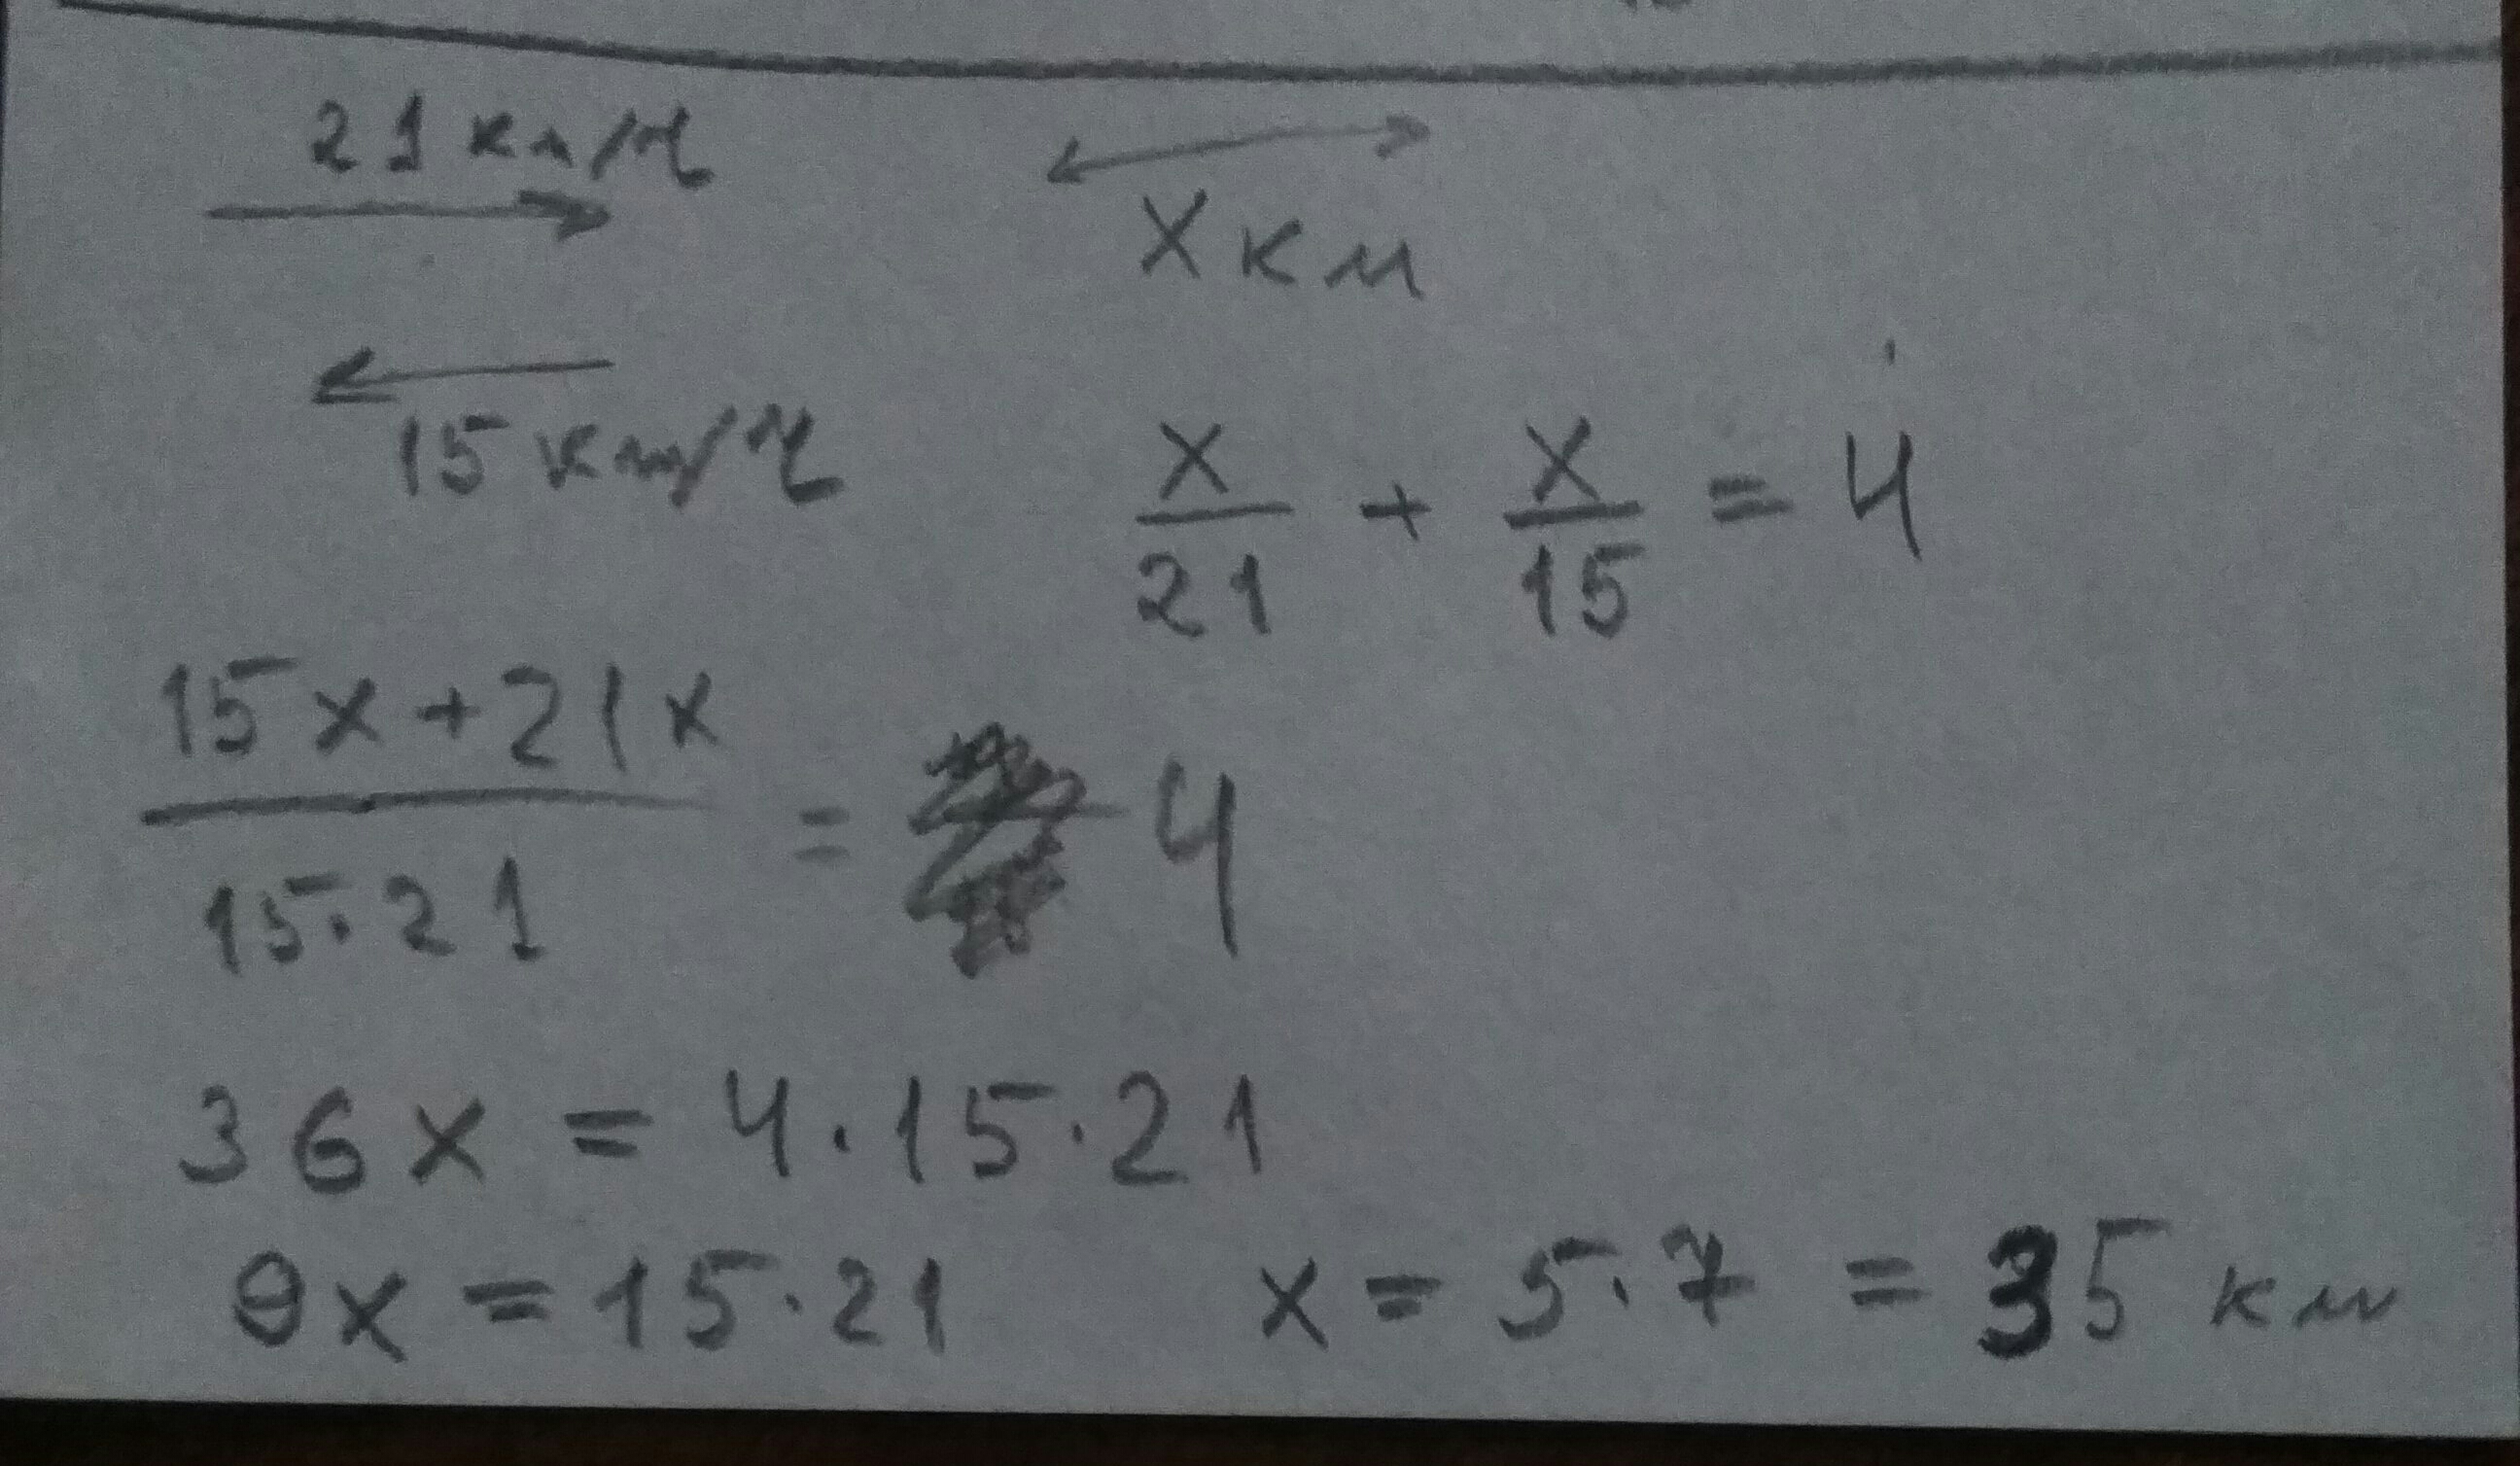 21 км/ч
x км
15 км/ч
x/21 + x/15 = 4
(15x+21x)/(15·21) = 4
36x = 4·15·21
9x = 15·21
x = 5·7 = 35 км